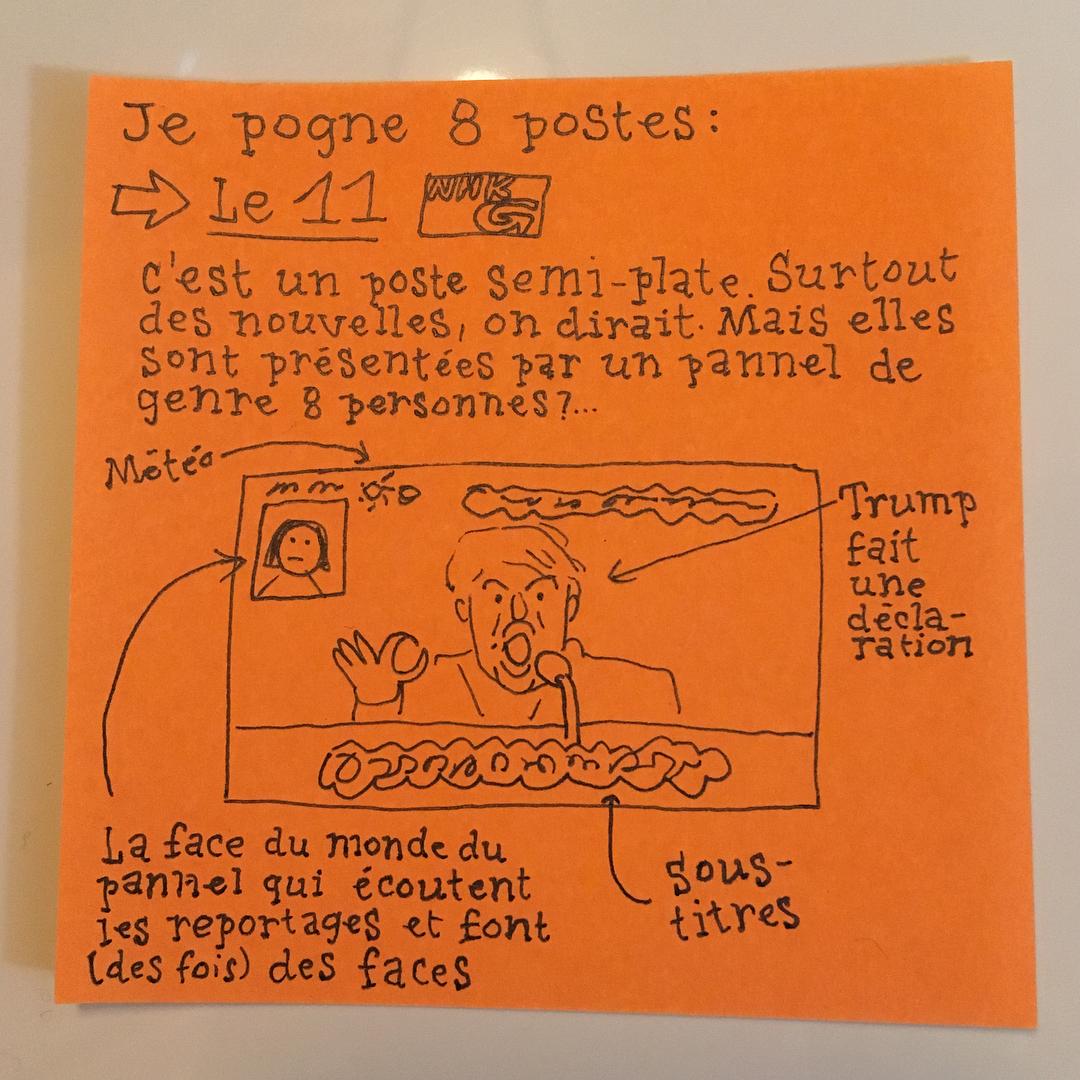 Je pogne 8 postes:
Le 11
c'est un poste semi-plate. Surtout
des nouvelles, on dirait. Mais elles
sont présentées par un pannel de
genre 8 personnes?...
Météo
Trump
fait
une
décla-
ration
La face du monde du
pannel qui écoutent
les reportages et font
(des fois) des faces
sous-
titres